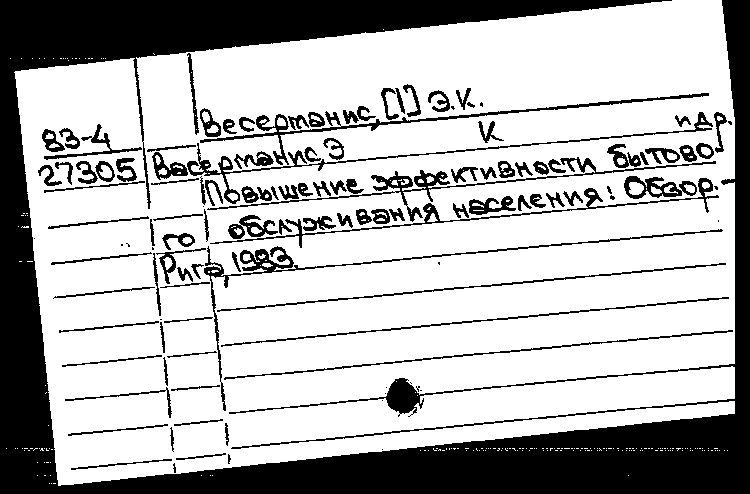 Весерманис, [!] Э.К.
83-4
27305
Васерманис, Э К и др.
Повышение эффективности бытово-
го обслуживания населения: Обзор.-
Рига, 1983.